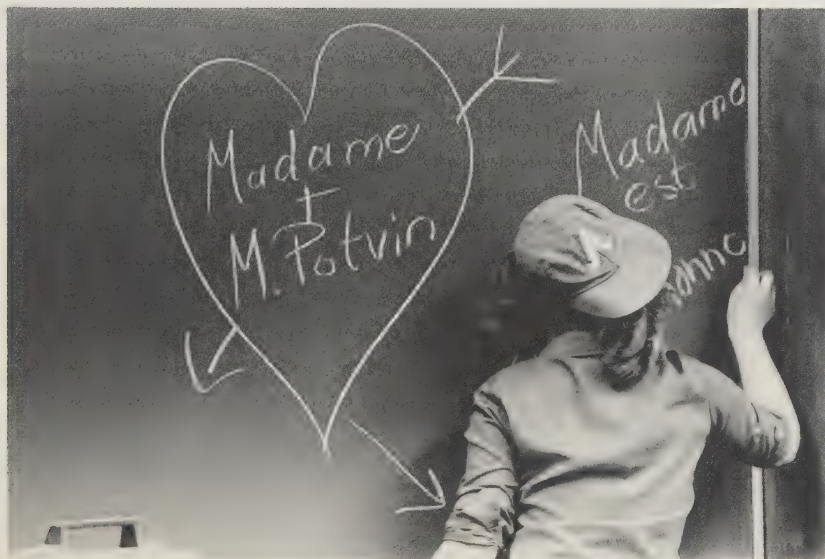 Madame
+
M. Potvin
Madame
est